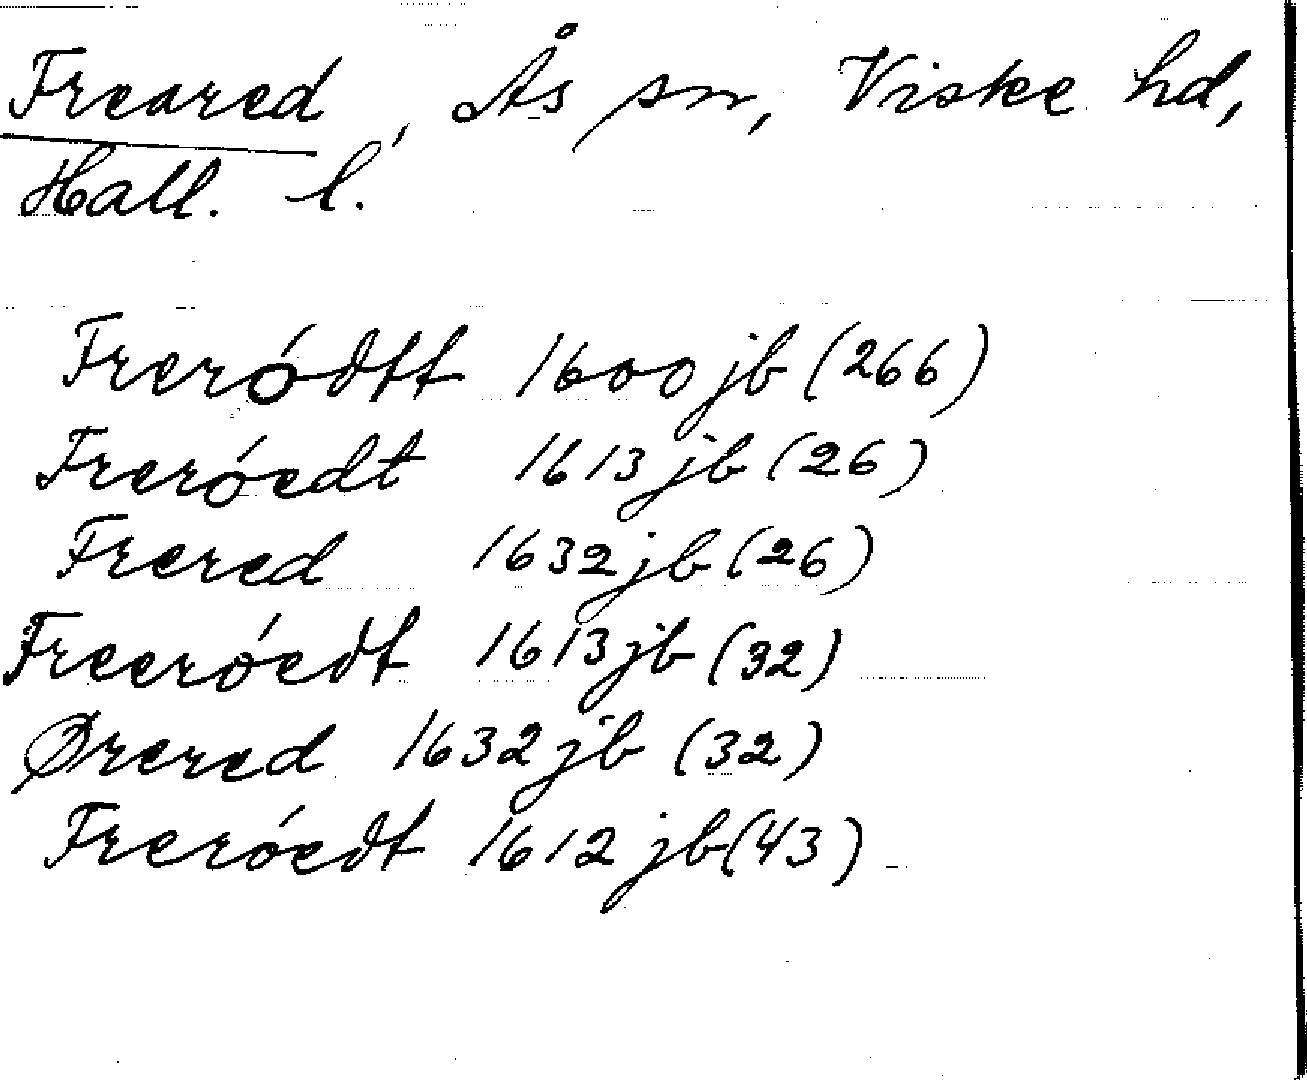 Freared, Ås sn, Viske hd,
Hall. l.
Freródtt 1600 jb (266)
Freróedt 1613 jb (26)
Frered 1632 jb (26)
Freeróedt 1613 jb (32)
Ørered 1632 jb (32)
Freróedt 1612 jb (43)